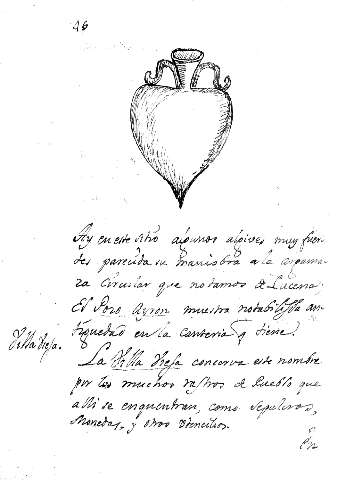 46
Ay en este sitio algunos algives muy fuer-
tes parecida su maniobra a la argama-
za circular que notamos de Lucena.
El Pozo Ayron muestra notabilissa an-
tiguedad en la canteria q tiene.
Villa Vieja.
La Villa Vieja conserva este nombre
por los muchos rastros de Pueblo que
alli se enquentran, como sepulcros,
Monedas, y otros utencilios.
En